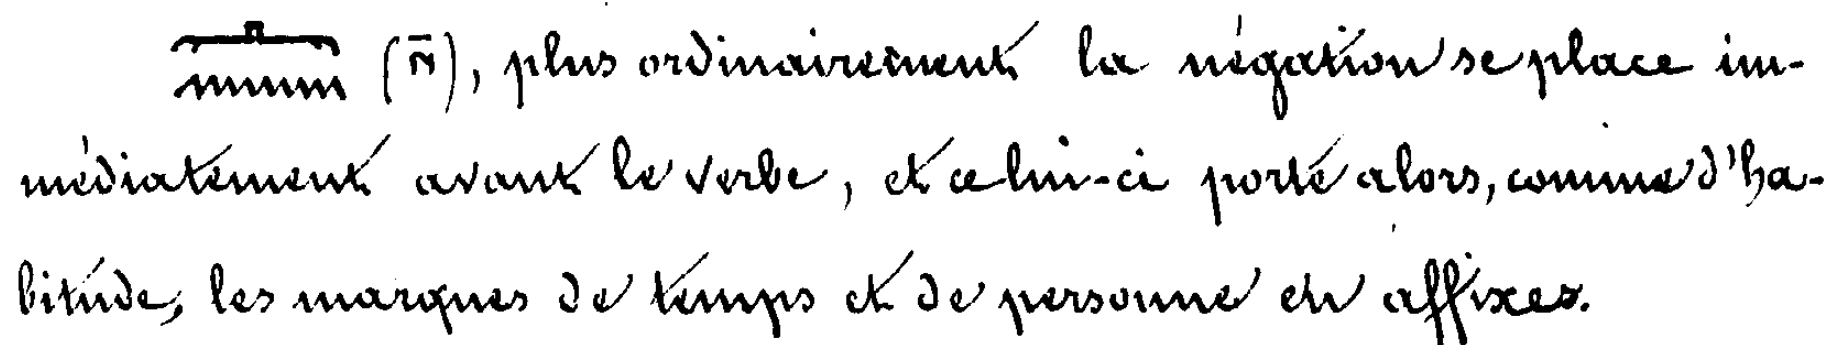 𓂜𓈖 (n̄), plus ordinairement la négation se place im-
médiatement avant le verbe, et celui-ci porte alors, comme d'ha-
bitude, les marques de temps et de personne en affixes.